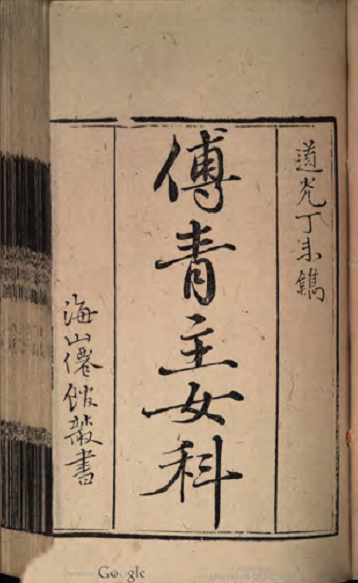 道光丁未鐫
傅青主女科
海山僊館叢書
Google